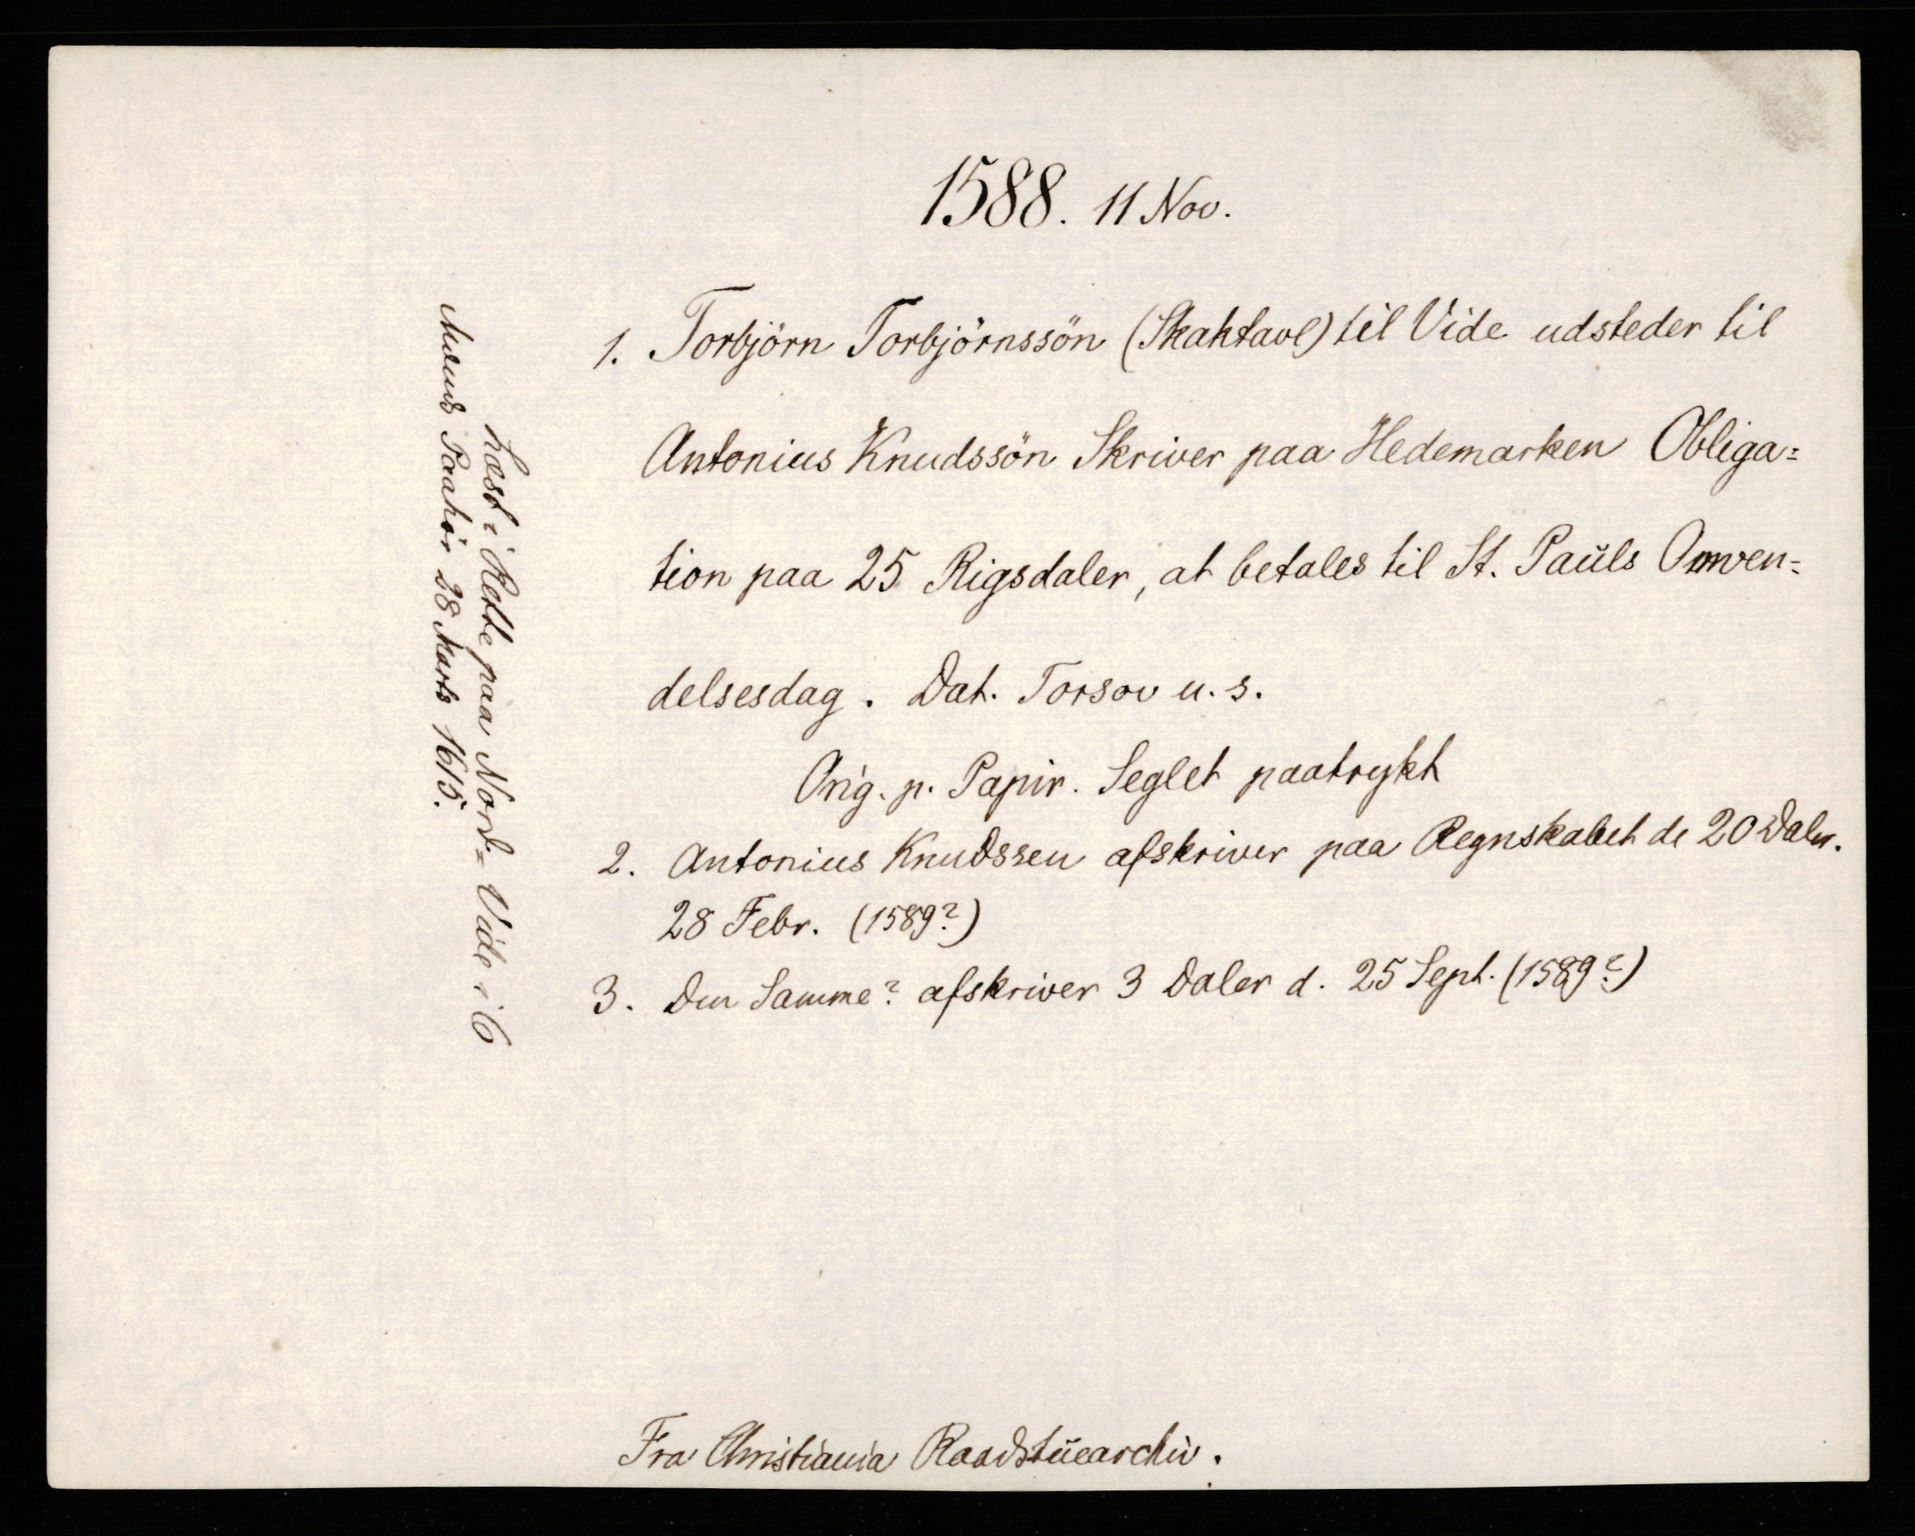 1588. 11 Nov.
1. Torbjörn Torbjörnssön (Skaktavl) til Vide udsteder til
Antonius Knudssön Skriver paa Hedemarken Obliga=
tion paa 25 Rigsdaler, at betales til St. Pauls Omven=
delsesdag. Dat. Torsov u. s.
Orig. p. Papir. Seglet paatrykt
2. Antonius Knudssen afskriver paa Regnskabet de 20 Daler.
28 Febr. (1589?)
3. Den Samme? afskriver 3 Daler d. 25 Sept. (1589?)
Læst i Rette paa Nord= Vide i 6
Mænds Paahør 28 Marts 1615.
Fra Christiania Raadstuearchiv.